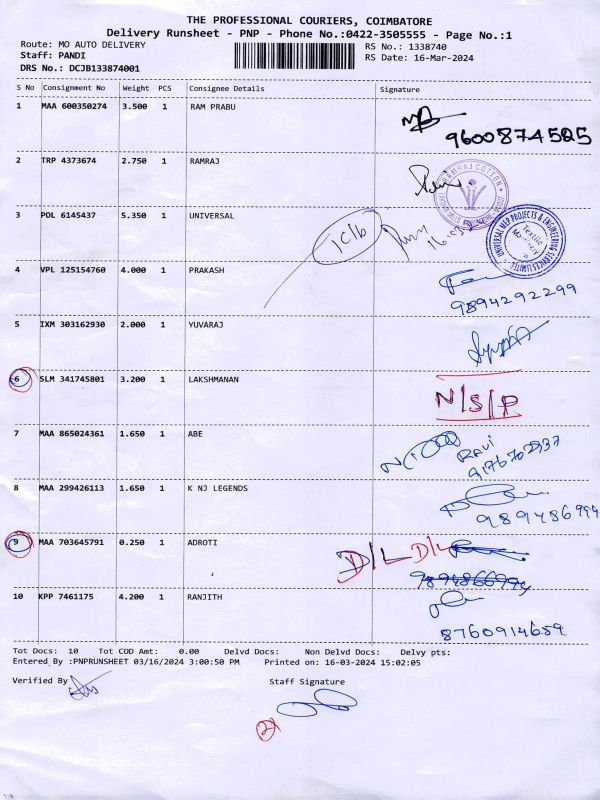 THE PROFESSIONAL COURIERS, COIMBATORE
Delivery Runsheet - PNP - Phone No.:0422-3505555 - Page No.:1
Route: MO AUTO DELIVERY RS No.: 1338740
Staff: PANDI RS Date: 16-Mar-2024
DRS No.: DCJB133874001
S No Consignment No Weight PCS Consignee Details Signature
1 MAA 600350274 3.500 1 RAM PRABU
9600874505
2 TRP 4373674 2.750 1 RAMRAJ
RAMRAJ COTTON
3 POL 6145437 5.350 1 UNIVERSAL
UNIVERSAL MEP PROJECTS & ENGINEERING SERVICES LIMITED
Textile
4 VPL 125154760 4.000 1 PRAKASH
9894292299
5 IXM 303162930 2.000 1 YUVARAJ
6 SLM 341745801 3.200 1 LAKSHMANAN N/S/P
7 MAA 865024361 1.650 1 ABE
Ravi
9176702937
8 MAA 299426113 1.650 1 K NJ LEGENDS
989486994
9 MAA 703645791 0.250 1 ADROTI D/L D/L
10 KPP 7461175 4.200 1 RANJITH
8760914659
Tot Docs: 10 Tot COD Amt: 0.00 Delvd Docs: Non Delvd Docs: Delvy pts:
Entered By :PNPRUNSHEET 03/16/2024 3:00:50 PM Printed on: 16-03-2024 15:02:05
Verified By Staff Signature
2